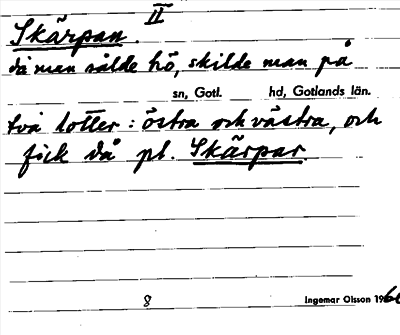 II
Skärpan.
då man sålde hö, skilde man på
sn, Gotl. hd, Gotlands län.
två lotter: östra och västra, och
fick då pl. Skärpar.
8 Ingemar Olsson 1960